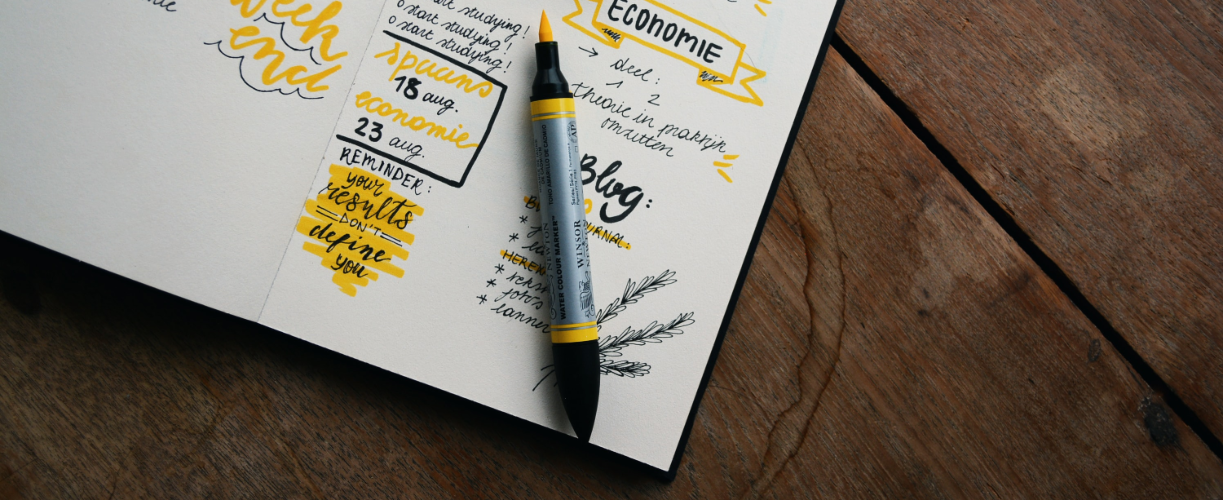 week
end
start studying!
o start studying!
o start studying!
spaans
18 aug.
economie
23 aug.
REMINDER:
your
results
DON'T
define
you
ECONOMIE
deel:
1 2
theorie in praktijk
omzetten
Blog:
*
*
*
*
foto's
WINSOR
NEWTON
WATER COLOUR MARKER